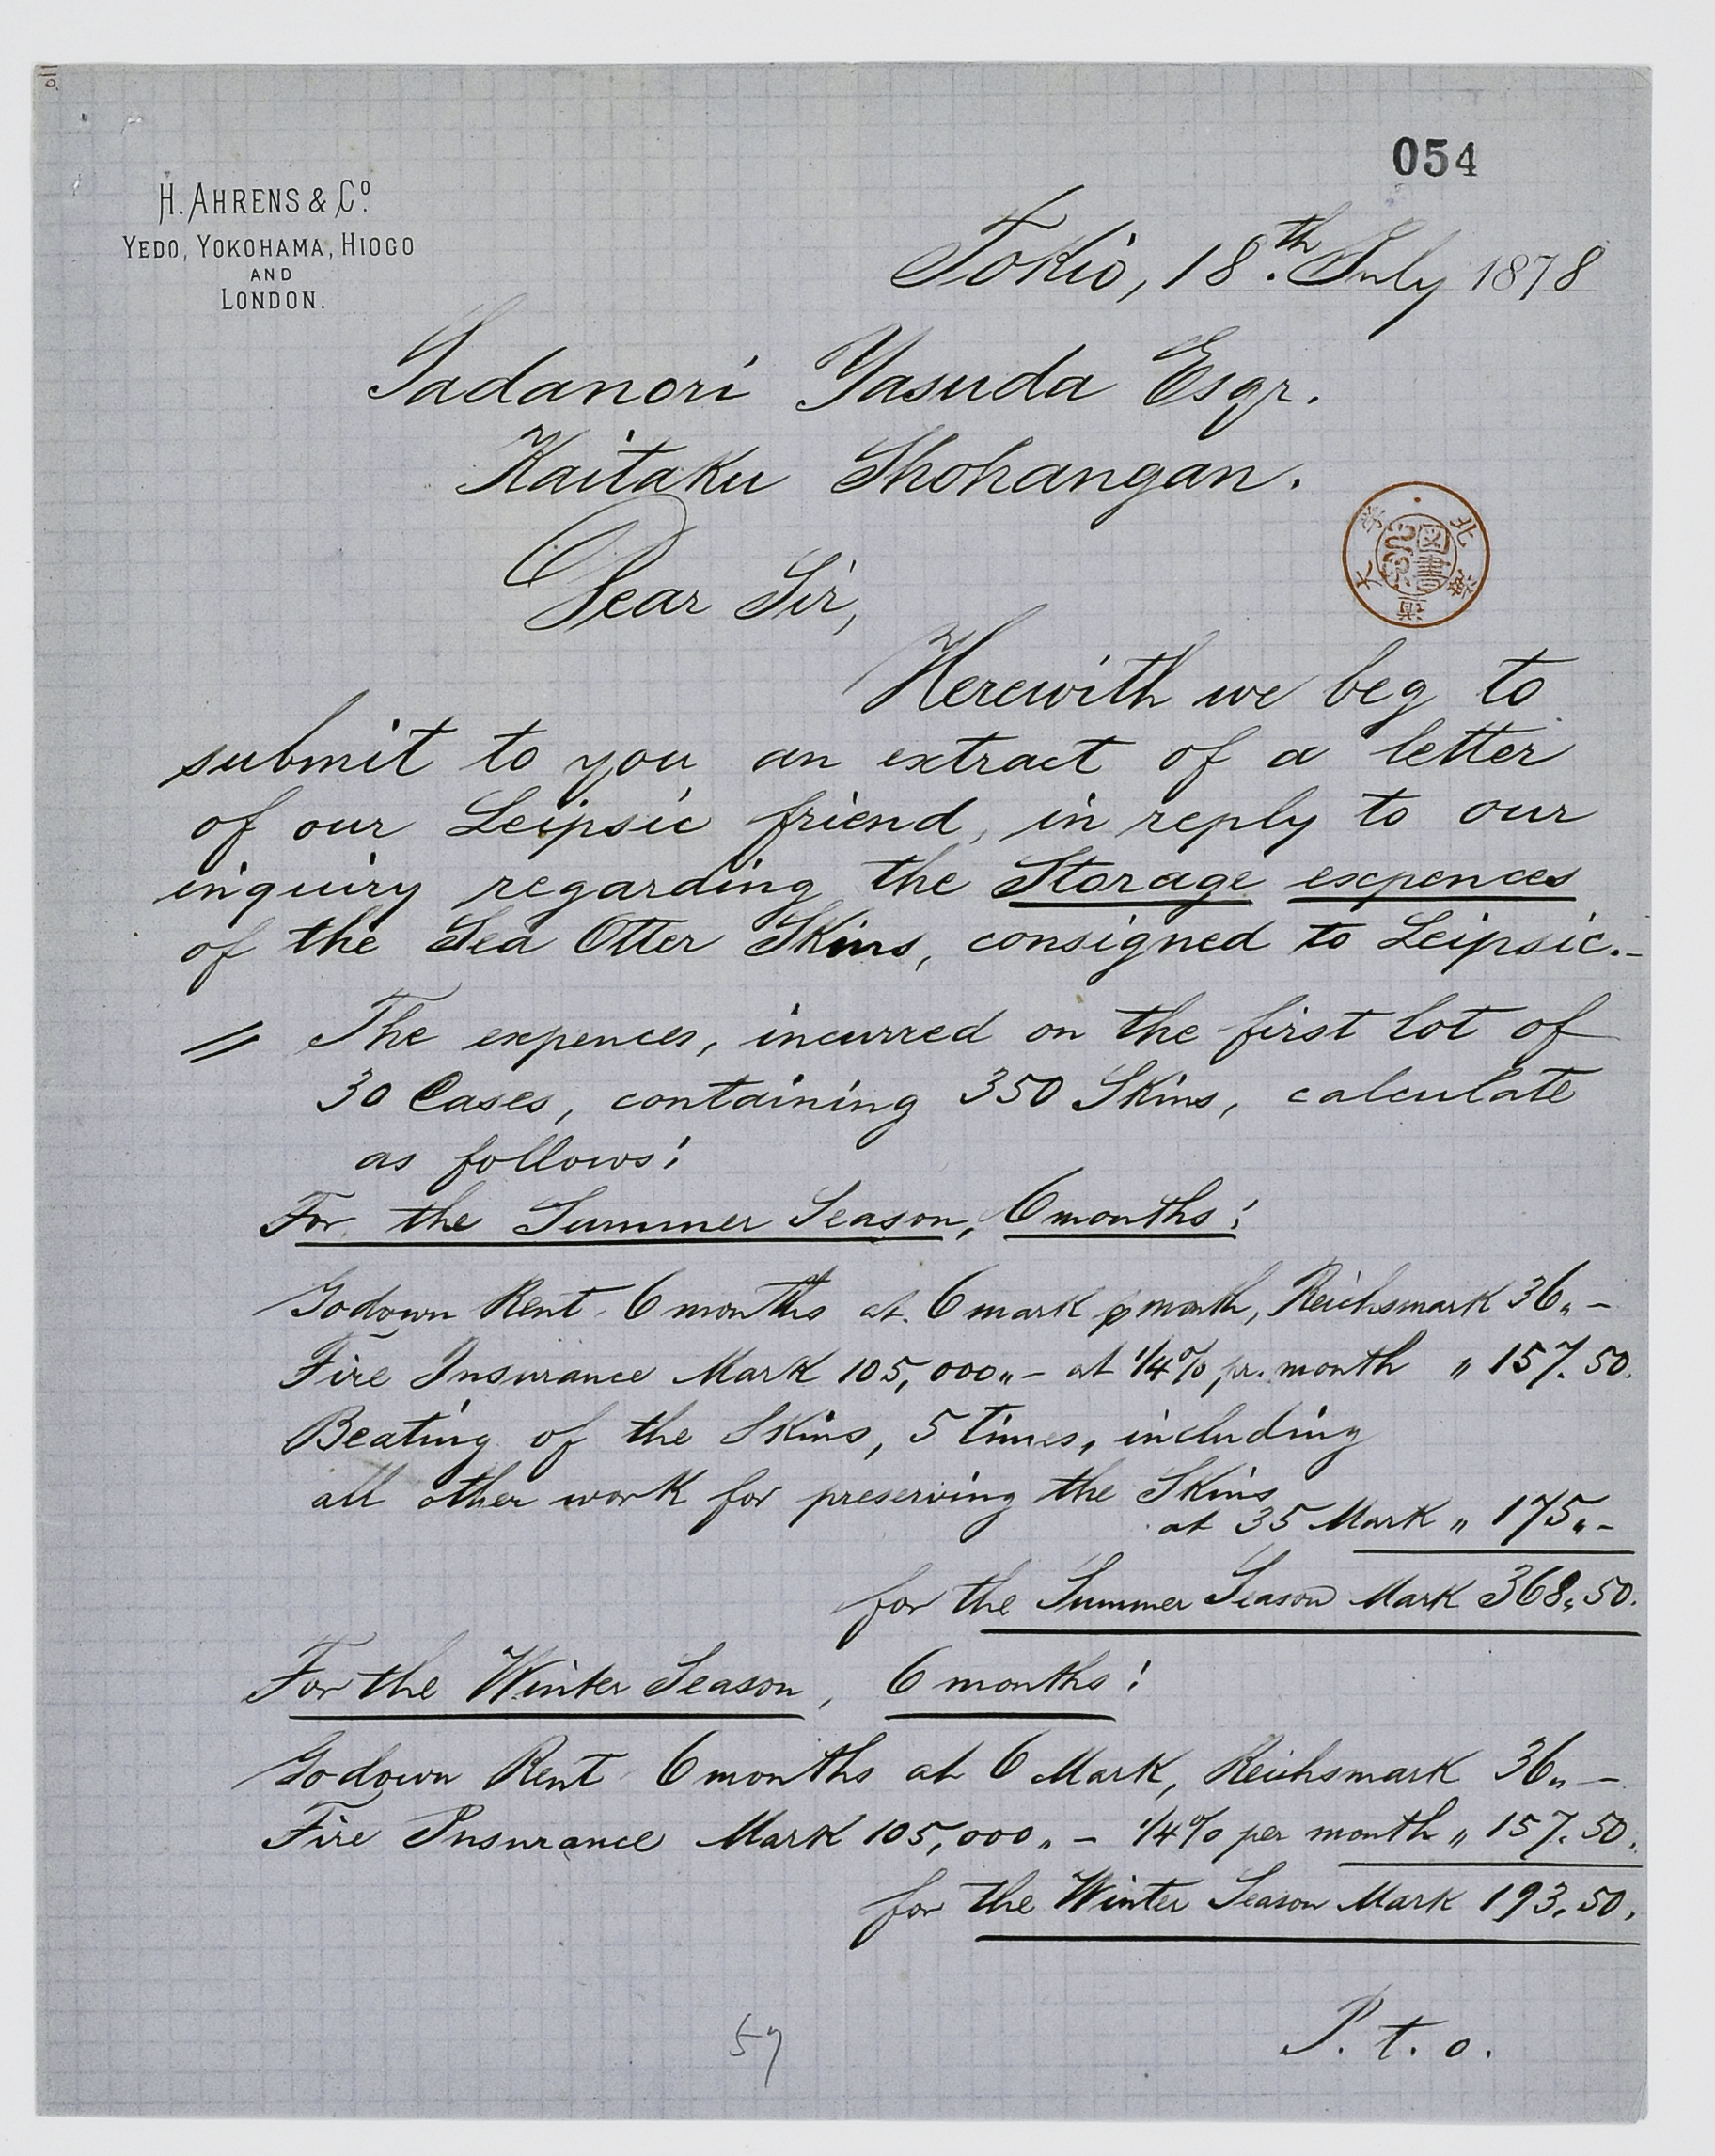 054
H. AHRENS & Co.
YEDO, YOKOHAMA, HIOGO
AND
LONDON.
Tokio, 18th July 1878
Tadanori Yasuda Esqr.
Kaitaku Shohangan.
Dear Sir,
Herewith we beg to
submit to you an extract of a letter
of our Leipsic friend, in reply to our
inquiry regarding the Storage expences
of the Sea Otter Skins, consigned to Leipsic.–
" The expences, incurred on the first lot of
30 Cases, containing 350 Skins, calculate
as follows:
For the Summer Season, 6 months:
Godown Rent 6 months at 6 mark p month, Reichsmark 36„–
Fire Insurance Mark 105,000„– at 1/4‰ pr. month " 157.50.
Beating of the Skins, 5 times, including
all other work for preserving the Skins
at 35 Mark " 175„–
for the Summer Season Mark 368.50.
For the Winter Season, 6 months:
Godown Rent 6 months at 6 Mark, Reichsmark 36„–
Fire Insurance Mark 105,000„– 1/4‰ per month " 157.50.
for the Winter Season Mark 193.50.
P. t. o.
57
北海道大学
図書